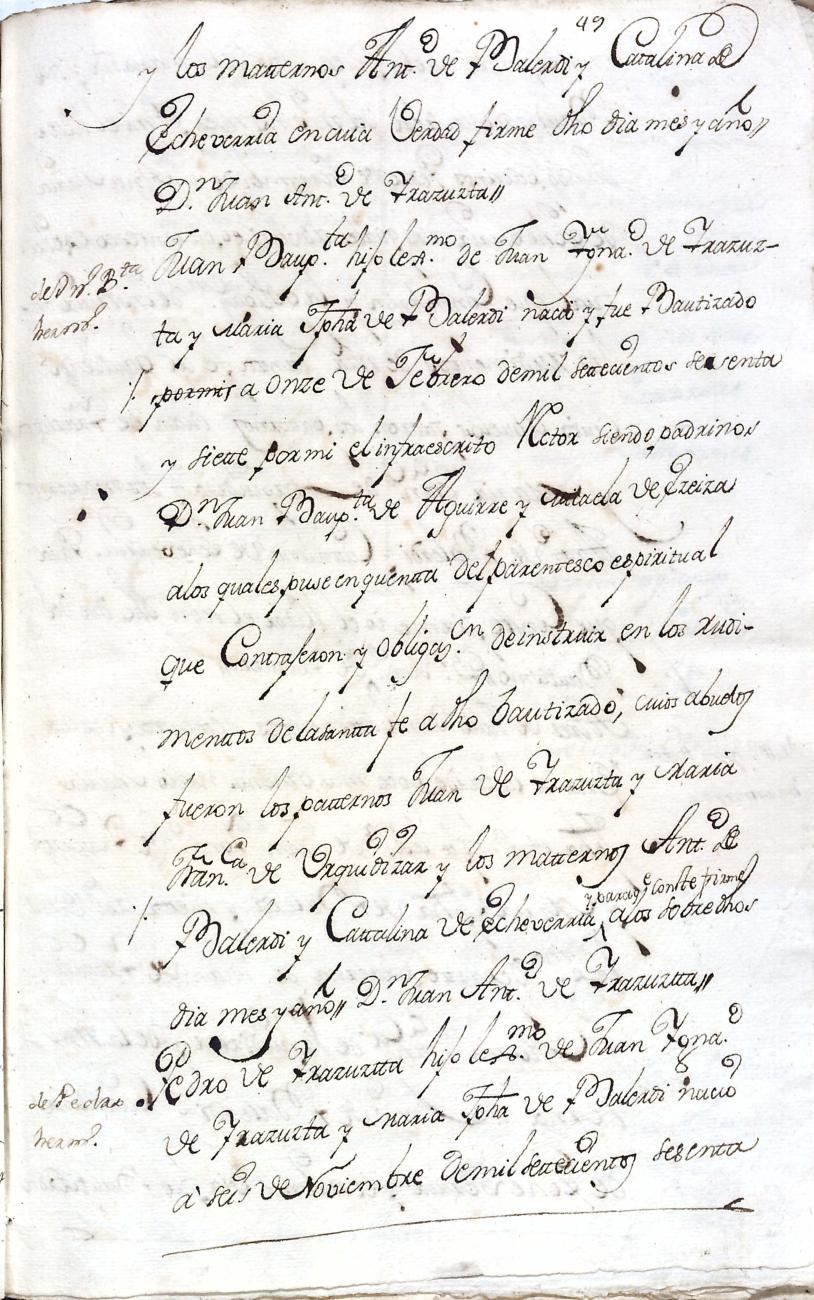 49
y los matternos Ant.º de Balerdi y Catalina de
Echeverria en cuia Verdad firme dho dia mes y año//
D.n Juan Ant.º de Irazuzta//
de Jn. B.ta
herm.º
Juan Baup.ta hijo leg.mo de Juan Igna.º de Irazuz-
ta y Maria Jpha de Balerdi nacio y fue Bautizado
/. por mi a onze de Febrero de mil settecientos sesenta
y siette por mi el infraescrito Rector siendo padrinos
D.n Juan Baup.ta de Aguirre y de Ereiza
a los quales puse en quenta del parentesco espiritual
que Contrajeron y obligaz.on de instruir en los rudi-
mentos de la santta fe a dho bautizado, cuios abuelos
fueron los patternos Juan de Irazuzta y Maria
Fran.ca de Urquidizar y los matternos Ant.º de
y para q.e Conste firme
/. Balerdi y Cattalina de Echeverria, a los sobredhos
dia mes y año// D.n Juan Ant.º de Irazuztta//
de Pedro
herm.º
Pedro de Irazuztta hijo leg.mo de Juan Igna.º
de Irazuzta y Maria Jpha de Balerdi nacio
a seis de Noviembre de mil settecientos sesenta